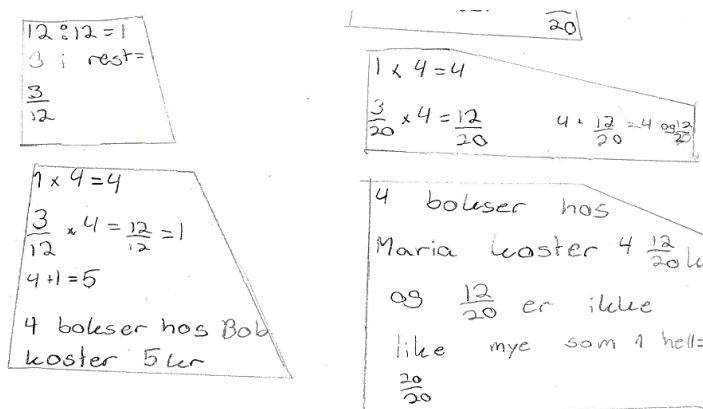 12:12=1
3 i rest=
3/12
1 x 4 = 4
3/12 x 4 = 12/12 = 1
4+1=5
4 bokser hos Bob
koster 5 kr
20
1 x 4 = 4
3/20 x 4 = 12/20 4 + 12/20 = 4 og 12/20
4 bokser hos
Maria koster 4 12/20 k
og 12/20 er ikke
like mye som 1 hell=
20/20